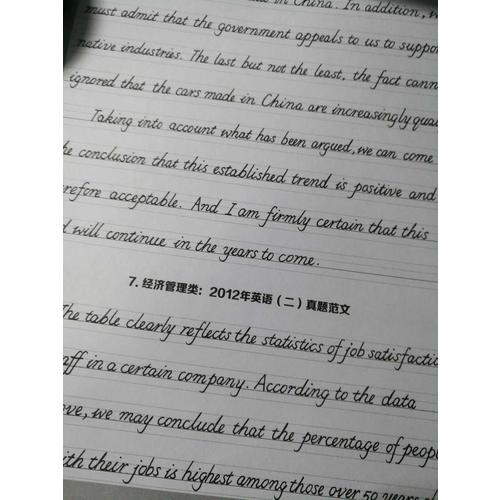 in China. In addition, w
must admit that the government appeals to us to suppor
native industries. The last but not the least, the fact cann
ignored that the cars made in China are increasingly qual
Taking into account what has been argued, we can come
he conclusion that this established trend is positive and
refore acceptable. And I am firmly certain that this
d will continue in the years to come.
7. 经济管理类：2012年英语（二）真题范文
The table clearly reflects the statistics of job satisfactio
aff in a certain company. According to the data
ove, we may conclude that the percentage of peopl
ith their jobs is highest among those over 50 years